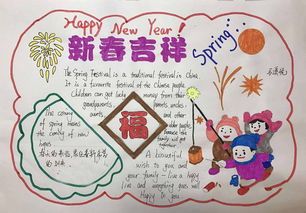 Happy New Year!
新春吉祥
Spring
The Spring Festival is a traditional festival in China.
It is a favourite festival of the Chinese people
Children can get lucky money from their
grandparents, parents, uncles
aunts and other
older people
The coming
of spring means
the coming of new
hopes
福
A beautiful
wish to you and
your family - live a happy
live and everything this will
Happy to you